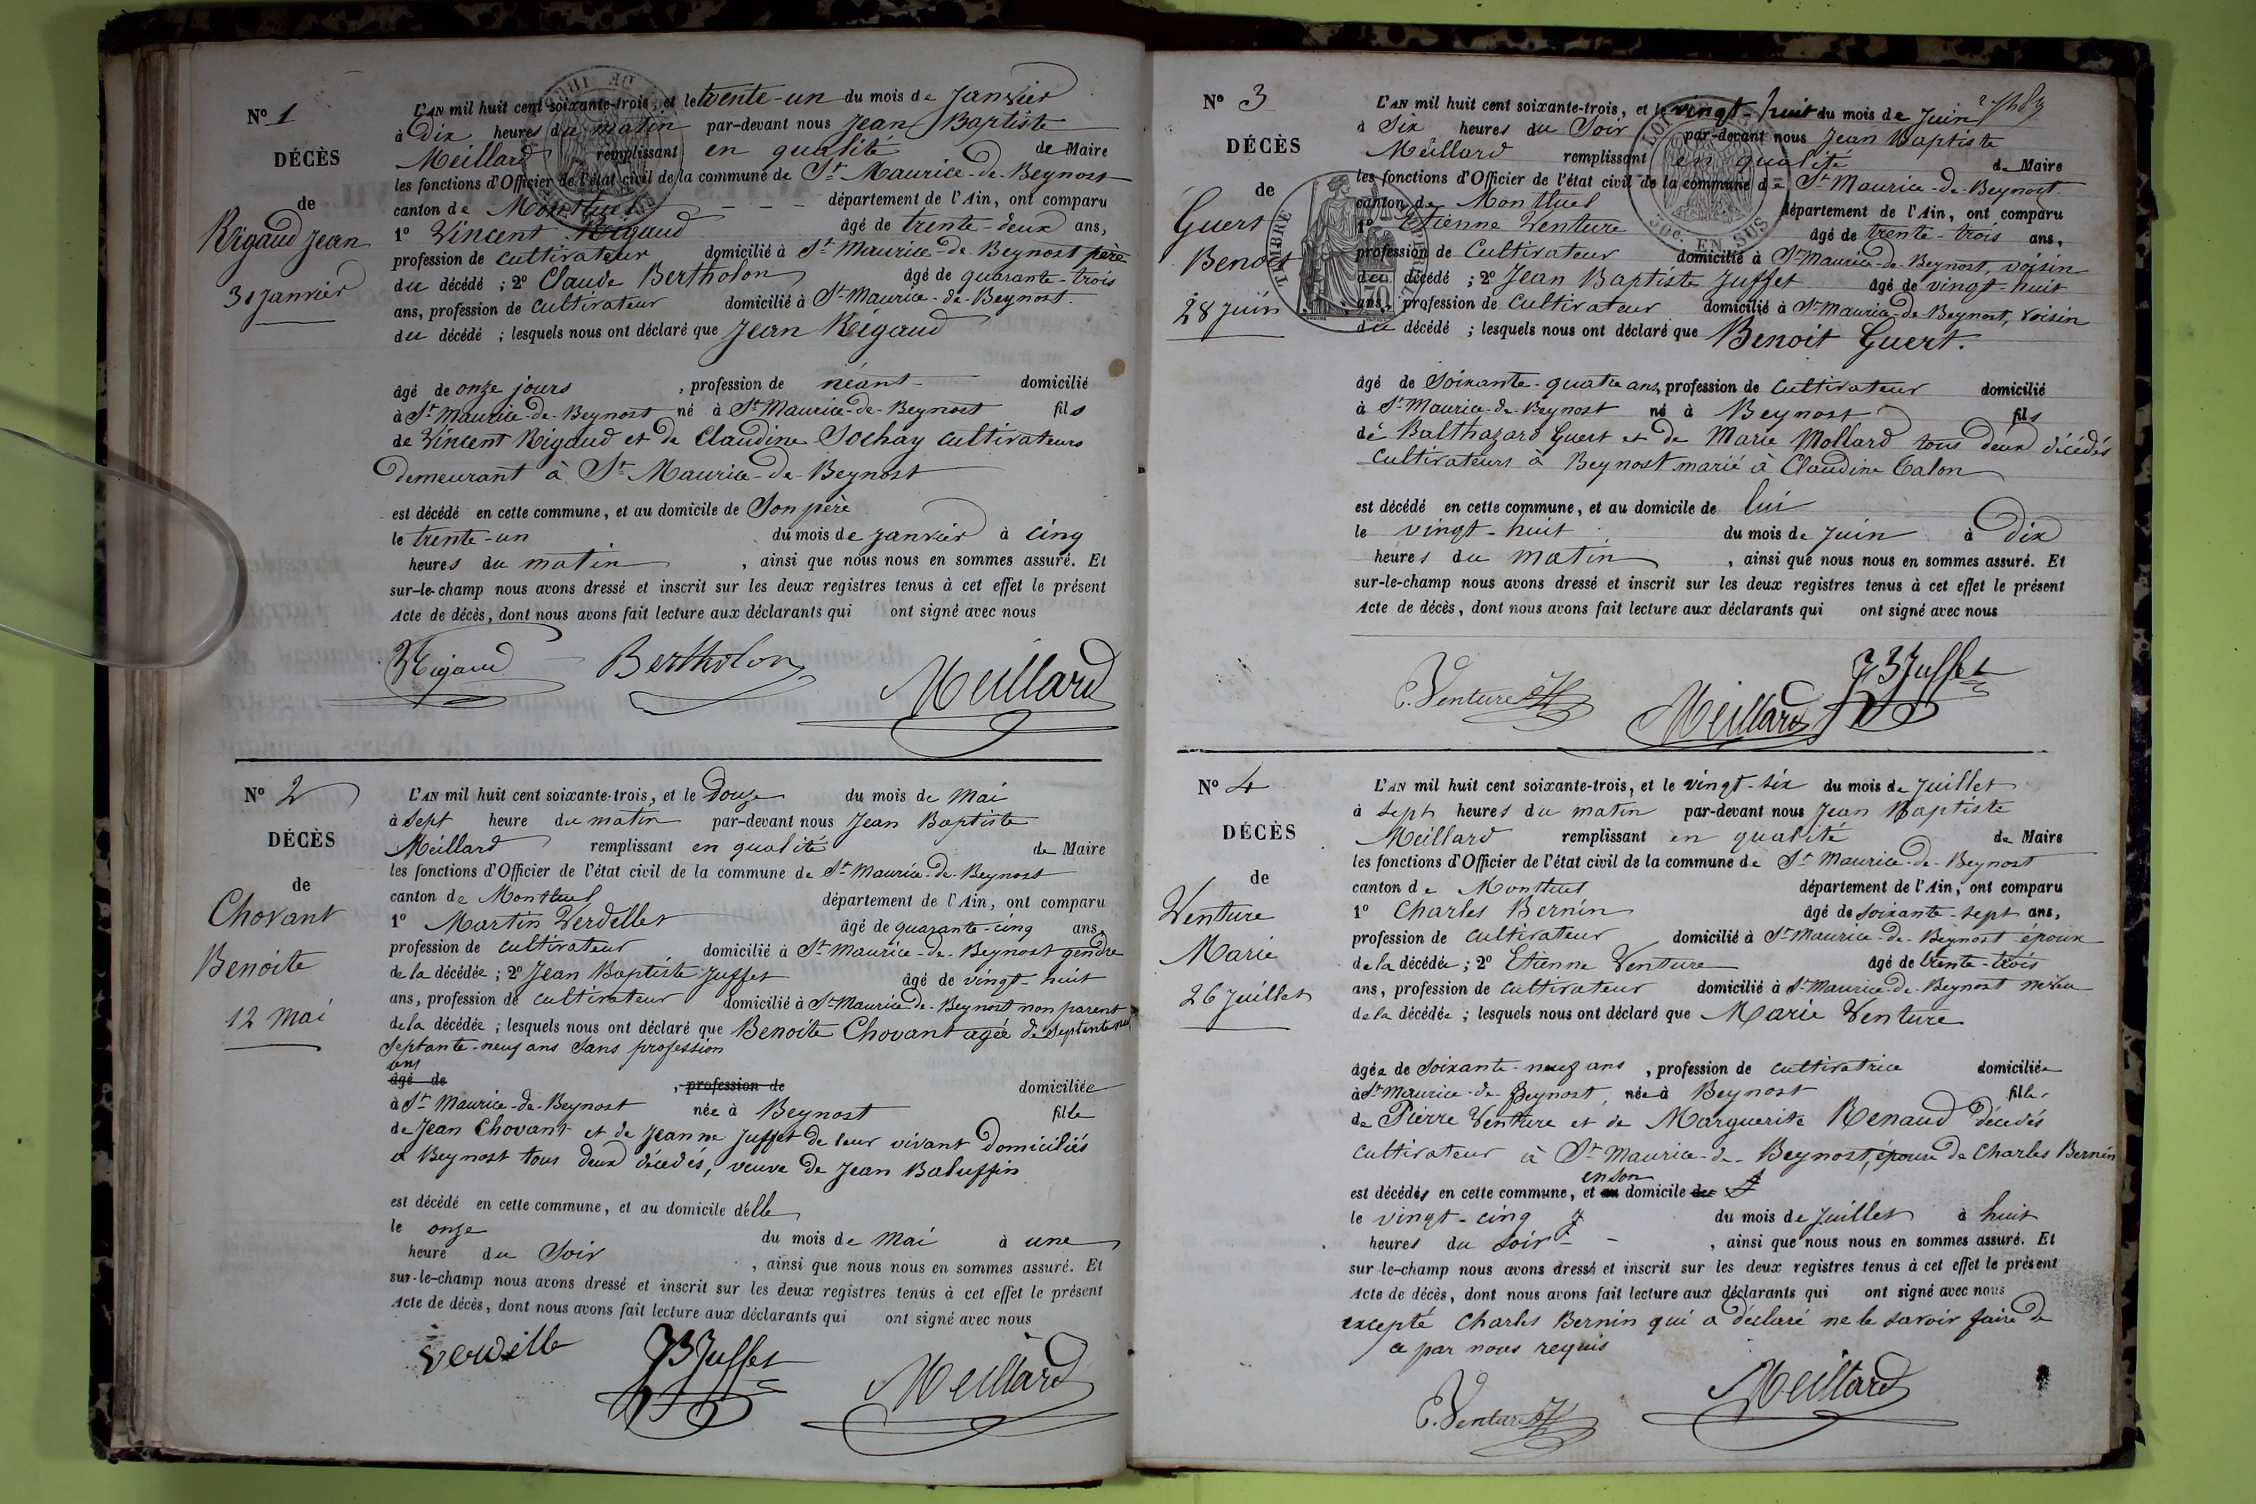 N° 1
DÉCÈS
de
Rigaud Jean
31 Janvier
L'AN mil huit cent soixante-trois, et le trente-un du mois de Janvier
à Dix heures du matin par-devant nous Jean Baptiste
Meillard remplissant en qualité de Maire
les fonctions d'Officier de l'état civil de la commune de St Maurice-de-Beynost
canton de Montluel - - - département de l'Ain, ont comparu
1° Vincent Rigaud âgé de trente-deux ans,
profession de cultivateur domicilié à St Maurice-de-Beynost père
du décédé ; 2° Claude Bertholon âgé de quarante-trois
ans, profession de cultivateur domicilié à St Maurice-de-Beynost.
du décédé ; lesquels nous ont déclaré que Jean Rigaud
âgé de onze jours , profession de néant domicilié
à St Maurice-de-Beynost né à St Maurice-de-Beynost fils
de Vincent Rigaud et de Claudine Sochay cultivateurs
demeurant à St Maurice-de-Beynost
est décédé en cette commune, et au domicile de Son père
le trente-un du mois de Janvier à cinq
heures du matin , ainsi que nous nous en sommes assuré. Et
sur-le-champ nous avons dressé et inscrit sur les deux registres tenus à cet effet le présent
Acte de décès, dont nous avons fait lecture aux déclarants qui ont signé avec nous
Rigaud Bertholon Meillard
N° 2
DÉCÈS
de
Chovant
Benoite
12 Mai
L'AN mil huit cent soixante-trois, et le Douze du mois de Mai
à Sept heure du matin par-devant nous Jean Baptiste
Meillard remplissant en qualité de Maire
les fonctions d'Officier de l'état civil de la commune de St Maurice-de-Beynost
canton de Montluel département de l'Ain, ont comparu
1° Martin Verdellet âgé de quarante-cinq ans,
profession de cultivateur domicilié à St Maurice-de-Beynost gendre
de la décédée ; 2° Jean Baptiste Juffet âgé de vingt-huit
ans, profession de cultivateur domicilié à St Maurice-de-Beynost non parent
de la décédée ; lesquels nous ont déclaré que Benoite Chovant agée de
Septante-neuf ans Sans profession
ans
âgé de , profession de domiciliée
à St Maurice-de-Beynost née à Beynost fille
de Jean Chovant et de Jeanne Juffet de leur vivant Domiciliés
à Beynost tous deux décédés, veuve de Jean Baluffin
est décédé en cette commune, et au domicile d'elle
le onze du mois de Mai à une
heure du Soir , ainsi que nous nous en sommes assuré. Et
sur-le-champ nous avons dressé et inscrit sur les deux registres tenus à cet effet le présent
Acte de décès, dont nous avons fait lecture aux déclarants qui ont signé avec nous
JB Juffet Meillard
N° 3
DÉCÈS
de
Guert
Benoit
28 Juin
TIMBRE
L'AN mil huit cent soixante-trois, et le vingt-huit du mois de Juin
à Six heures du Soir par-devant nous Jean Baptiste
Meillard remplissant en qualité de Maire
les fonctions d'Officier de l'état civil de la commune de St Maurice-de-Beynost
canton de Montluel département de l'Ain, ont comparu
1° Etienne Venture âgé de trente-trois ans,
profession de Cultivateur domicilié à St Maurice-de-Beynost, voisin
du décédé ; 2° Jean Baptiste Juffet âgé de vingt-huit
ans, profession de cultivateur domicilié à St Maurice-de-Beynost, voisin
du décédé ; lesquels nous ont déclaré que Benoit Guert.
âgé de Soixante-quatre ans, profession de cultivateur domicilié
à St Maurice-de-Beynost né à Beynost fils
de Balthazard Guert et de Marie Mollard tous deux décédés
cultivateurs à Beynost marié à Claudine Calon
est décédé en cette commune, et au domicile de lui
le vingt-huit du mois de Juin à Dix
heures du matin , ainsi que nous nous en sommes assuré. Et
sur-le-champ nous avons dressé et inscrit sur les deux registres tenus à cet effet le présent
Acte de décès, dont nous avons fait lecture aux déclarants qui ont signé avec nous
E. Venture Meillard JB Juffet
N° 4
DÉCÈS
de
Venture
Marie
26 Juillet
L'AN mil huit cent soixante-trois, et le vingt-six du mois de Juillet
à Sept heures du matin par-devant nous Jean Baptiste
Meillard remplissant en qualité de Maire
les fonctions d'Officier de l'état civil de la commune de St Maurice-de-Beynost
canton de Montluel département de l'Ain, ont comparu
1° Charles Bernin âgé de soixante-sept ans,
profession de cultivateur domicilié à St Maurice-de-Beynost époux
de la décédée ; 2° Etienne Venture âgé de trente-trois
ans, profession de cultivateur domicilié à St Maurice-de-Beynost neveu
de la décédée ; lesquels nous ont déclaré que Marie Venture
âgée de soixante-neuf ans , profession de cultivatrice domiciliée
à St Maurice-de-Beynost, née à Beynost fille
de Pierre Venture et de Marguerite Renaud décédés
cultivateur à St Maurice-de-Beynost, épouse de Charles Bernin
en son
est décédée en cette commune, et au domicile de
le vingt-cinq du mois de Juillet à huit
heures du soir , ainsi que nous nous en sommes assuré. Et
sur-le-champ nous avons dressé et inscrit sur les deux registres tenus à cet effet le présent
Acte de décès, dont nous avons fait lecture aux déclarants qui ont signé avec nous
excepté Charles Bernin qui a déclaré ne le savoir faire de
ce par nous requis
E. Venture Meillard